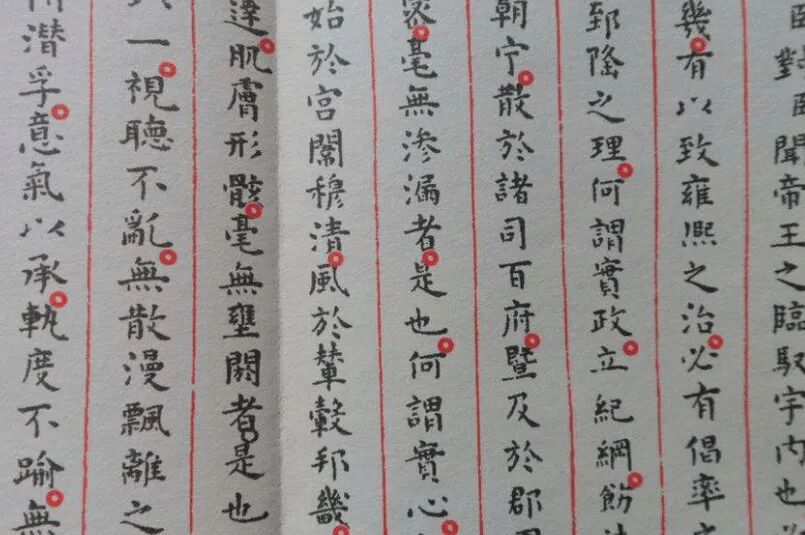 對聞帝王之臨馭宇内也必
幾有以致雍熙之治必有倡率之
郅隆之理何謂實政立紀綱飭法
朝宁散於諸司百府暨及於郡
毫無滲漏者是也何謂實心
始於宮闈穆清風於輦轂邦畿
達肌膚形骸毫無壅閼者是也
一視聽不亂無散漫飄離之
潛孚意氣以承執度不踰無